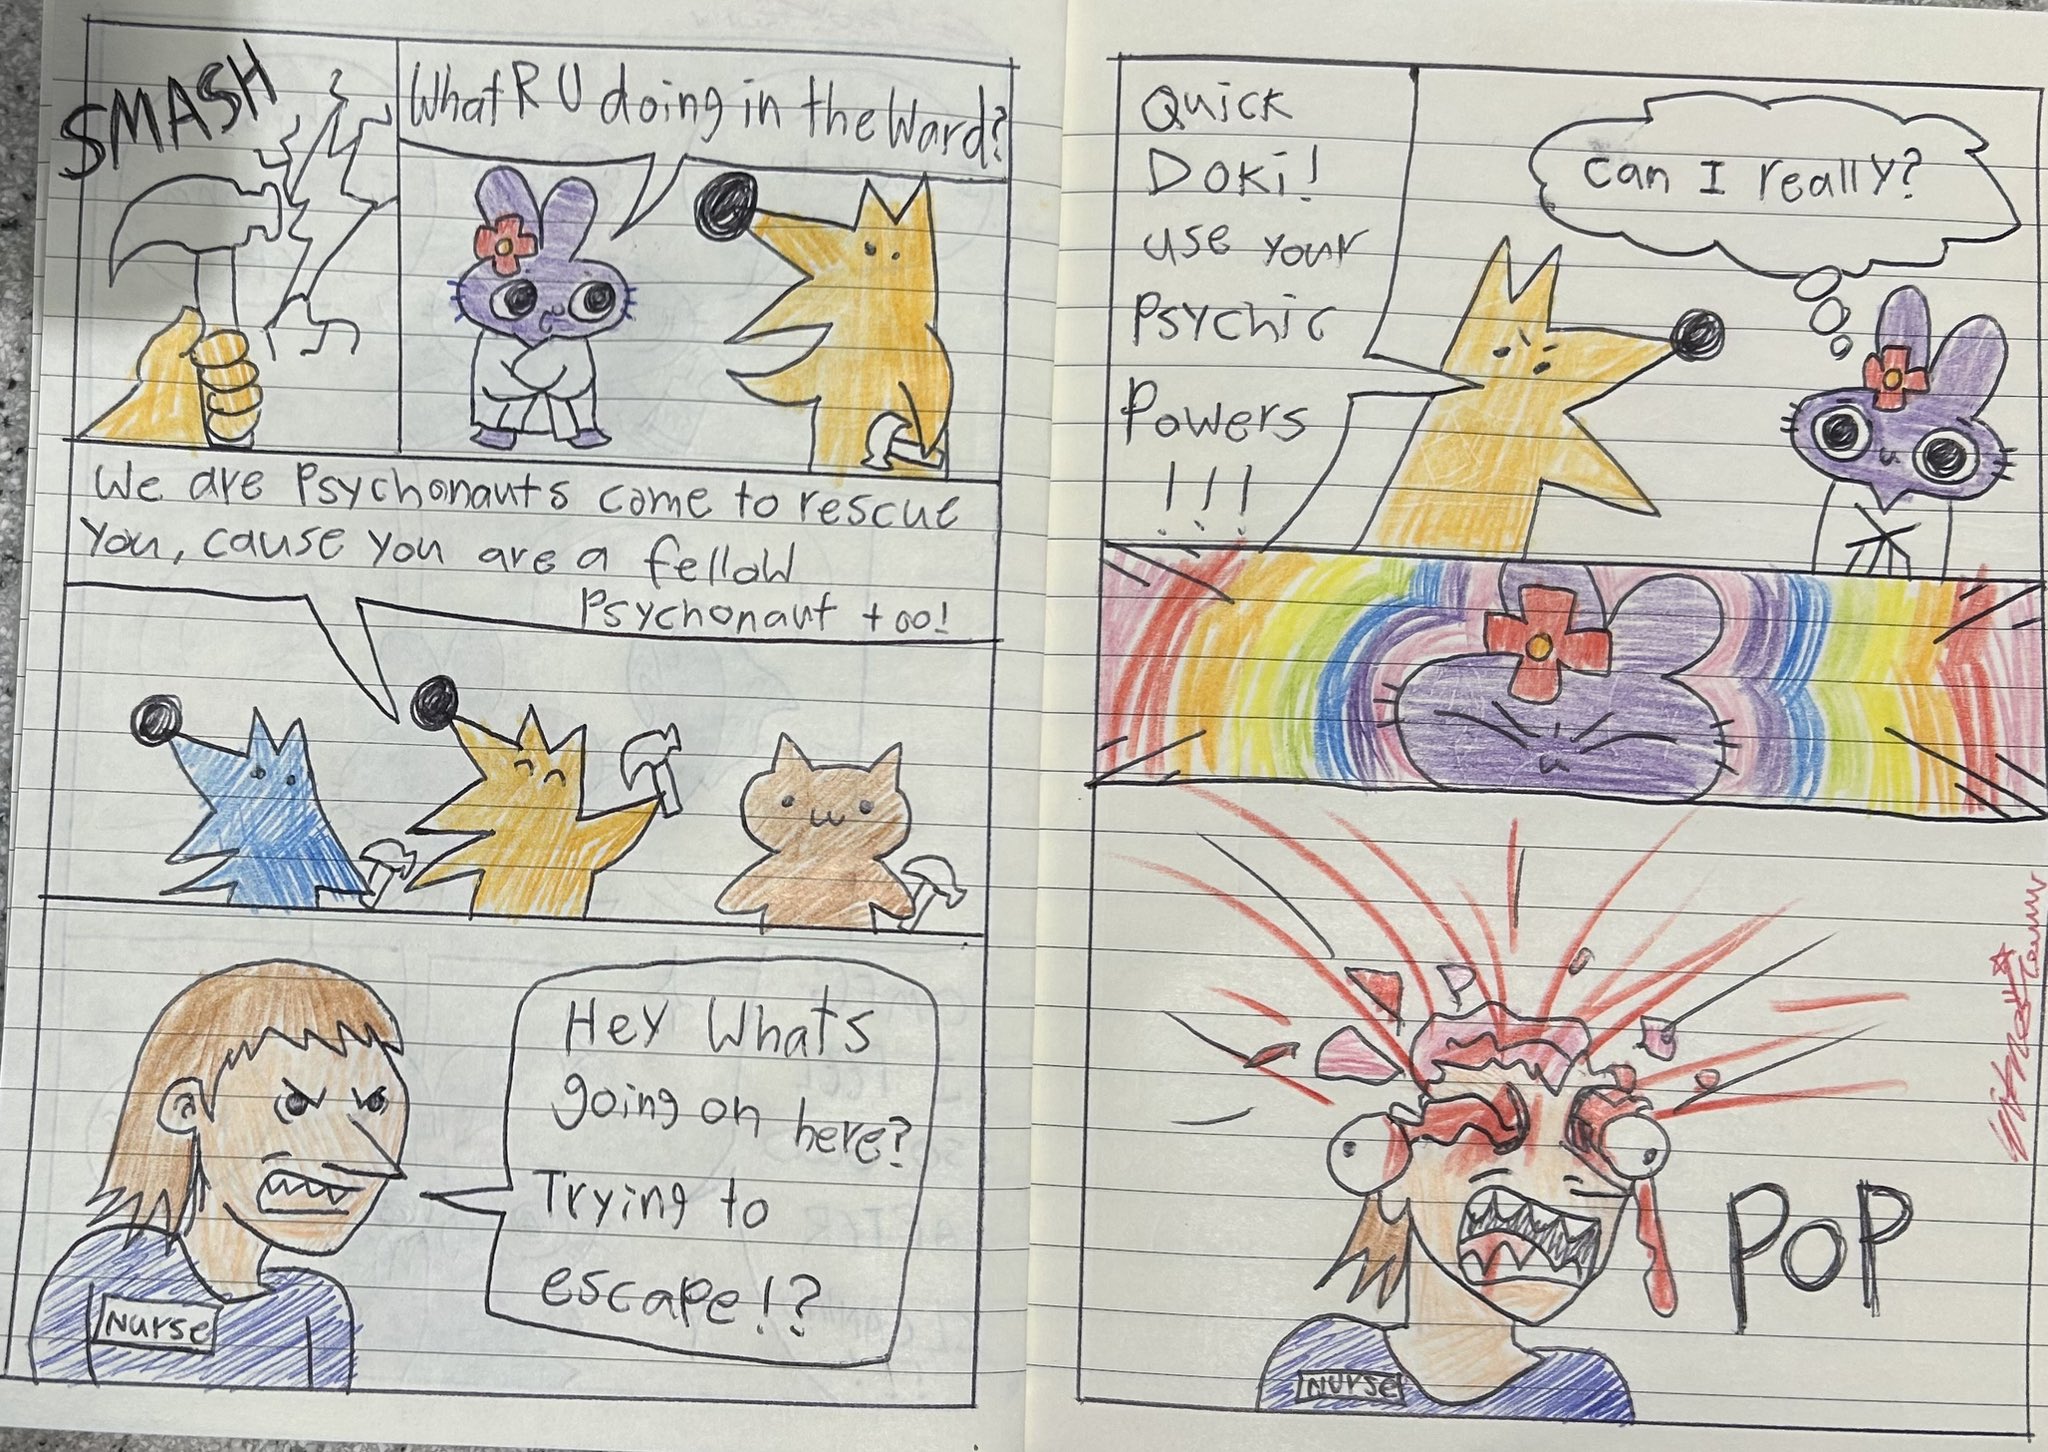 SMASH
What R U doing in the Ward?
We are Psychonauts come to rescue
You, cause you are a fellow
Psychonaut too!
Hey Whats
going on here?
Trying to
escape!?
Nurse
Quick
Doki!
use your
Psychic
Powers
!!!
can I really?
POP
Nurse